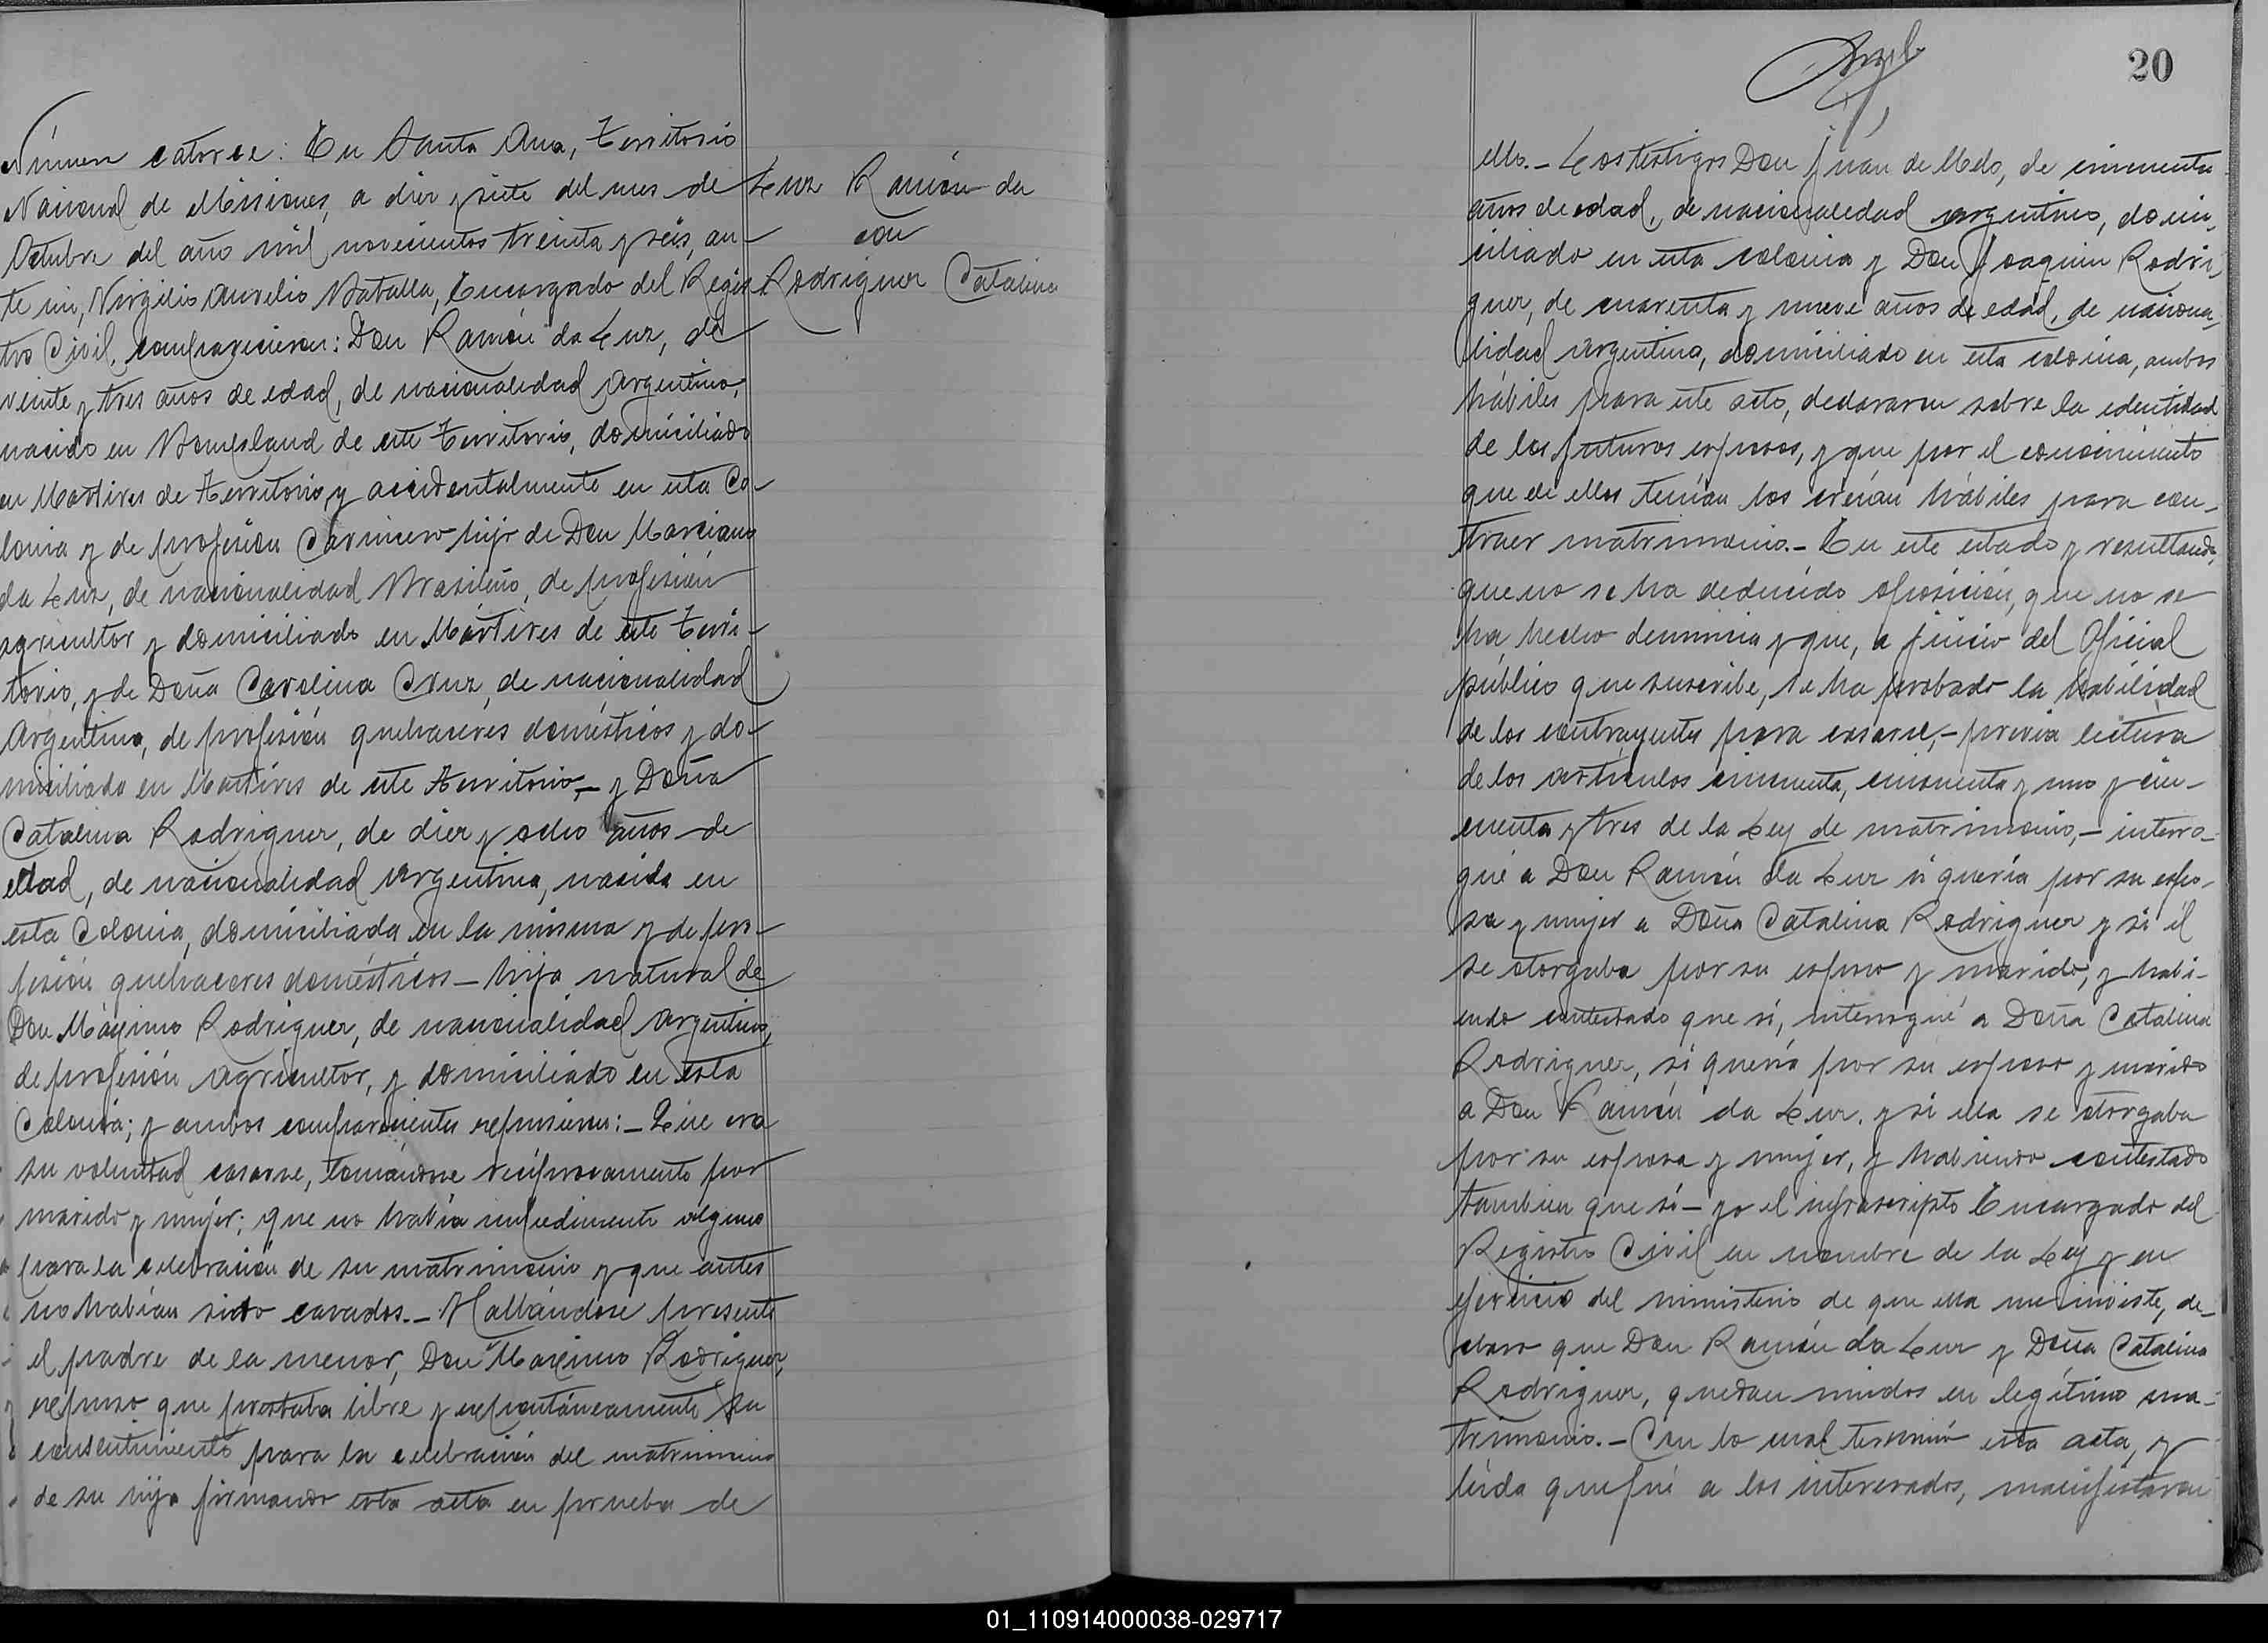 Número catorce: En Santa Ana, Territorio
Nacional de Misiones, a diez y siete del mes de
Octubre del año mil novecientos treinta y seis, an-
te mi, Virgilio Aurelio Batalla, Encargado del Regis-
tro Civil, comparecieron: Don Ramón da Luz, de
veinte y tres años de edad, de nacionalidad Argentino,
nacido en Bompland de este Territorio, domiciliado
en Martires de Territorio, y accidentalmente en esta Co-
lonia y de profesión Carnicero hijo de Don Marciano
da Luz, de nacionalidad Brasileño, de profesión
agricultor y domiciliado en Mártires de este Terri-
torio, y de Doña Carolina Cruz, de nacionalidad
Argentina, de profesión quehaceres domésticos y do-
miciliada en Martires de este Territorio,- y Doña
Catalina Rodriguez, de diez y ocho años de
edad, de nacionalidad Argentina, nacida en
esta Colonia, domiciliada en la misma y de pro-
fesión quehaceres domésticos - hija natural de
Don Máximo Rodriguez, de nacionalidad Argentino,
de profesión Agricultor, y domiciliado en esta
Colonia; y ambos comparecientes expusieron:- Que era
su voluntad casarse, tomándose recíprocamente por
marido y mujer; que no había impedimento alguno
para la celebración de su matrimonio y que antes
no habían sido casados.- Hallándose presente
el padre de la menor, Don Máximo Rodriguez,
expuso que prestaba libre y espontáneamente su
consentimiento para la celebración del matrimonio
de su hija firmando esta acta en prueba de
Luz Ramón da
con
Rodriguez Catalina
20
ello.- Los testigos Don Juan de Melo, de cincuenta
años de edad, de nacionalidad argentino, domi-
ciliado en esta colonia y Don Joaquin Rodri-
guez, de cuarenta y nueve años de edad, de naciona-
lidad argentina, domiciliado en esta colonia, ambos
hábiles para este acto, declararon sobre la identidad
de los futuros esposos, y que por el conocimiento
que de ellos tenían los creían hábiles para con-
traer matrimonio.- En este estado y resultando,
que no se ha deducido oposición, que no se
ha hecho denuncia y que, a juicio del Oficial
público que suscribe, se ha probado la habilidad
de los contrayentes para casarse,- previa lectura
de los artículos cincuenta, cincuenta y uno y cin-
cuenta y tres de la Ley de matrimonio,- interro-
gué a Don Ramón da Luz si quería por su espo-
sa y mujer a Doña Catalina Rodriguez y si él
se otorgaba por su esposo y marido, y habi-
endo contestado que sí, interrogué a Doña Catalina
Rodriguez, si quería por su esposo y marido
a Don Ramón da Luz, y si ella se otorgaba
por su esposa y mujer, y habiendo contestado
tambien que sí - yo el infrascripto Encargado del
Registro Civil en nombre de la Ley y en
ejercicio del ministerio de que ella me inviste, de-
claro que Don Ramón da Luz y Doña Catalina
Rodriguez, quedan unidos en legítimo ma-
trimonio.- Con lo cual terminó esta acta, y
leída que fué a los interesados, manifestaron
01_110914000038-029717